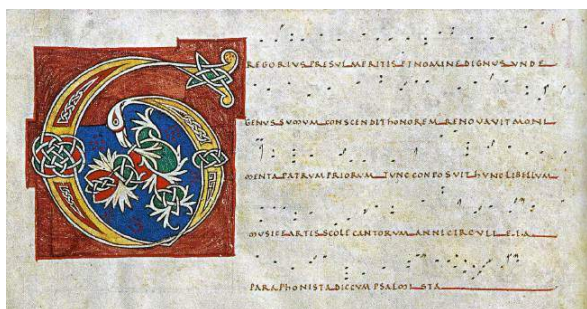 GREGORIUS PRESUL MERITIS ET NOMINE DIGNUS UNDE
GENUS SUMUM CONSCENDIT HONOREM RENOVAVIT MONI
MENTA PATRUM PRIORUM TUNC CONPOSUIT HUNC LIBELLUM
MUSICE ARTIS SCOLE CANTORUM ANNI CIRCULI ELIA
PARAPHONISTA DICCUM PSALMISTA